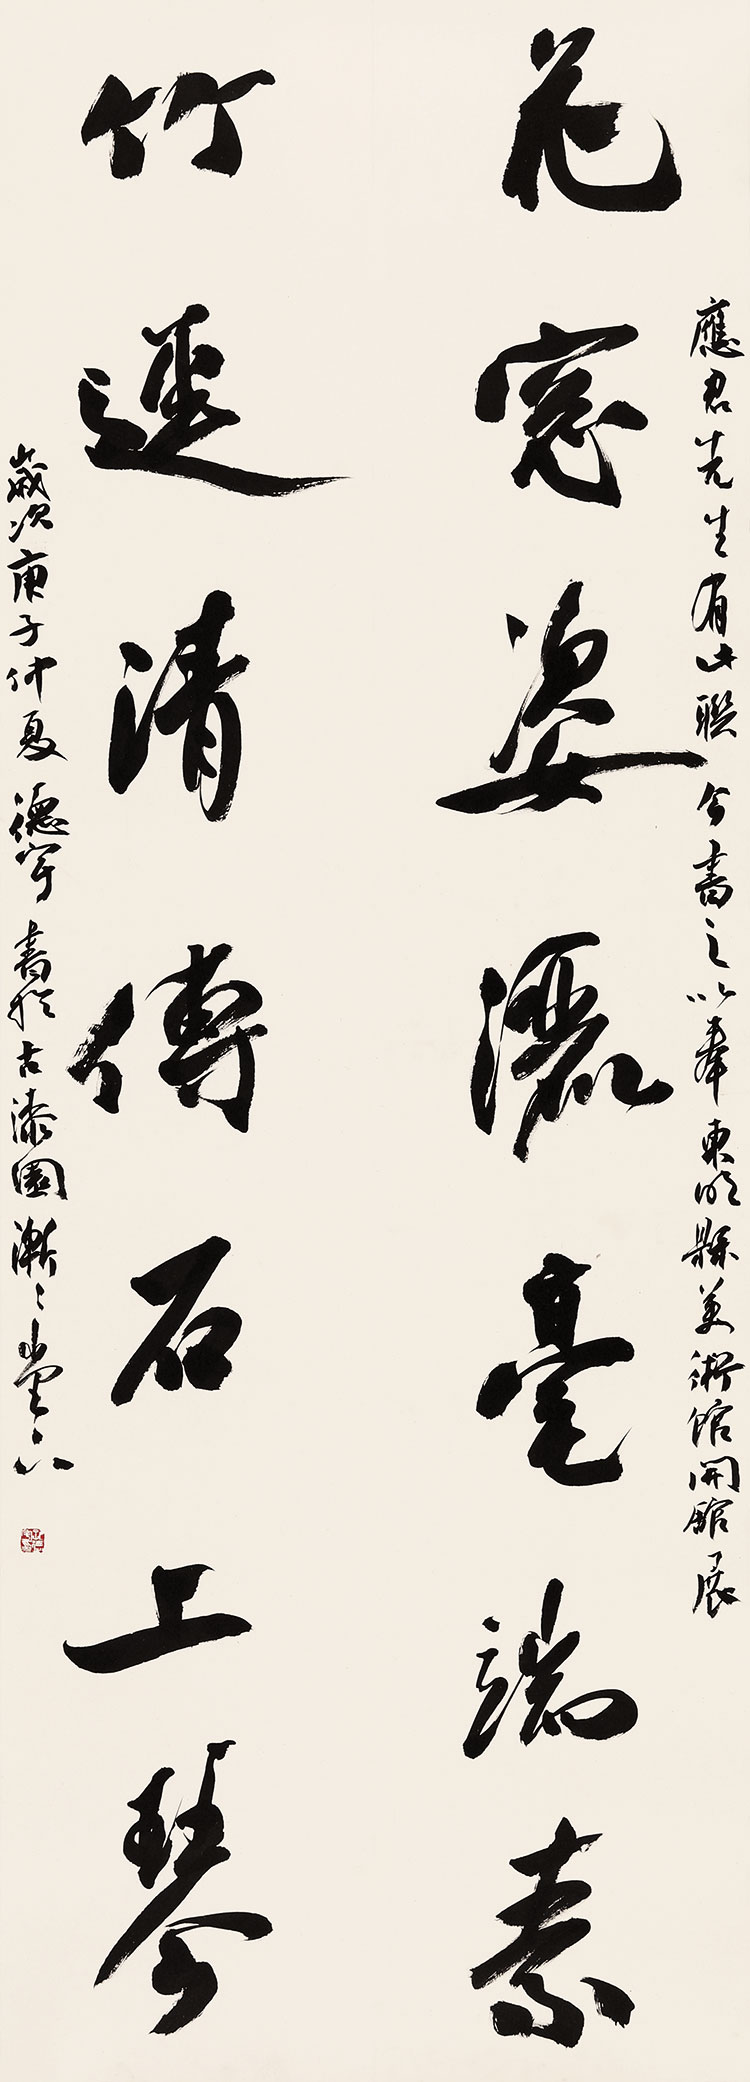 應君先生有此聯今書之以奉東明縣美術館開館展
花窗姿灑毫端素
竹逕清傳石上琴
歲次庚子仲夏德宇書於古漆園漸〻堂下